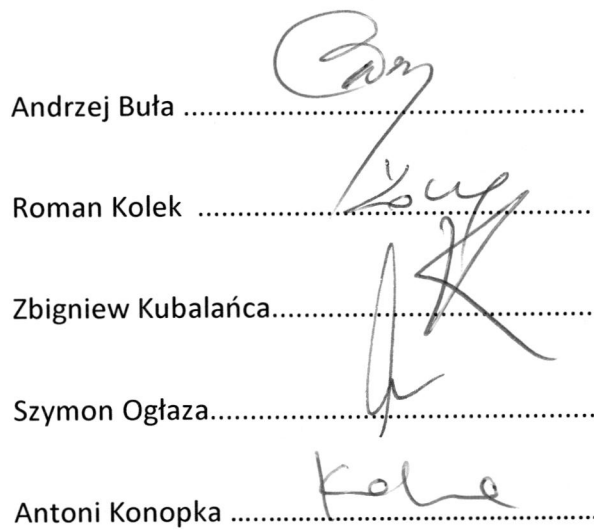 Andrzej Buła ......................................................
Roman Kolek ......................................................
Zbigniew Kubalańca.............................................
Szymon Ogłaza......................................................
Antoni Konopka ..................................................